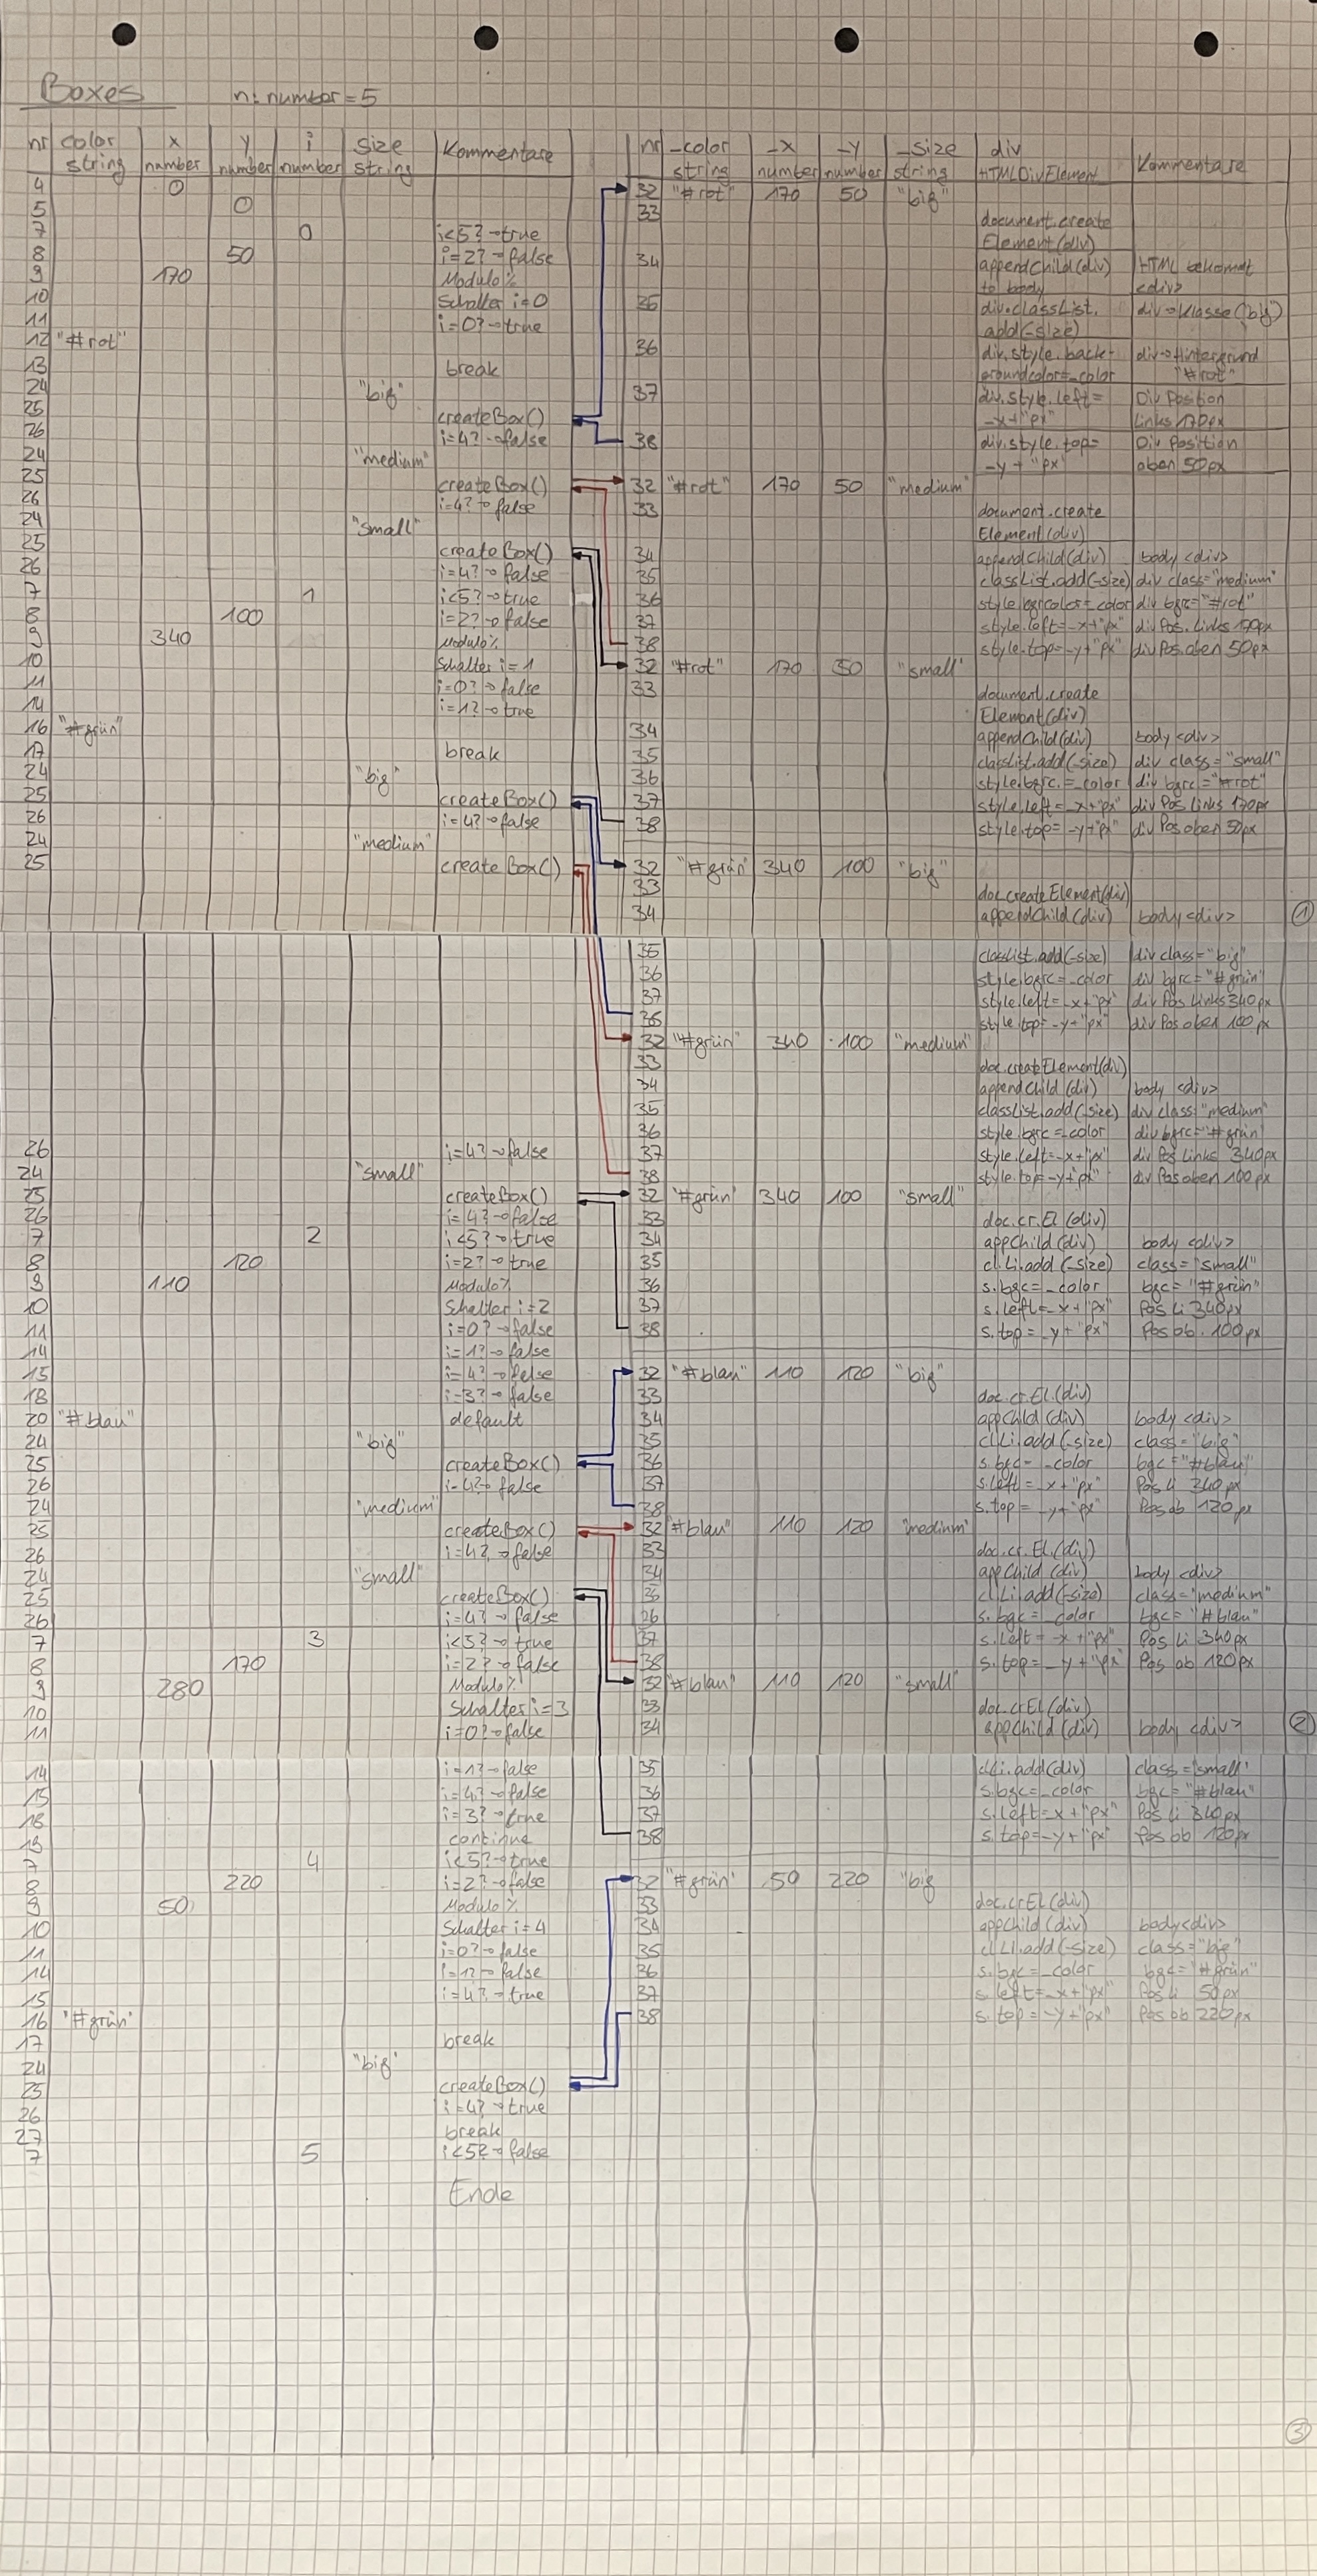 Boxes n: number = 5
nr color string x number y number i number size string Kommentare
4 0
5 0
7 0 i<5? → true
8 50 i=2? → false
9 170 Modulo %
10 Schalter i=0
11 i=0? → true
12 "#rot"
13 break
24 "big"
25 createBox()
26 i=4? → false
24 "medium"
25 createBox()
26 i=4? → false
24 "small"
25 createBox()
26 i=4? → false
7 1 i<5? → true
8 100 i=2? → false
9 340 Modulo %
10 Schalter i=1
11 i=0? → false
14 i=1? → true
16 "#grün"
17 break
24 "big"
25 createBox()
26 i=4? → false
24 "medium"
25 createBox()
26 i=4? → false
24 "small"
25 createBox()
26 i=4? → false
7 2 i<5? → true
8 120 i=2? → true
9 110 Modulo %
10 Schalter i=2
11 i=0? → false
14 i=1? → false
15 i=4? → false
18 i=3? → false
20 "#blau" default
24 "big"
25 createBox()
26 i=4? → false
24 "medium"
25 createBox()
26 i=4? → false
24 "small"
25 createBox()
26 i=4? → false
7 3 i<5? → true
8 170 i=2? → false
9 280 Modulo %
10 Schalter i=3
11 i=0? → false
14 i=1? → false
15 i=4? → false
18 i=3? → true
19 continue
7 4 i<5? → true
8 220 i=2? → false
9 50 Modulo %
10 Schalter i=4
11 i=0? → false
14 i=1? → false
15 i=4? → true
16 "#grün"
17 break
24 "big"
25 createBox()
26 i=4? → true
27 break
7 5 i<5? → false
Ende
nr _color string _x number _y number _size string div HTMLDivElement Kommentare
32 "#rot" 170 50 "big"
33 document.create
Element(div)
34 appendChild(div) HTML bekommt
to body <div>
35 div.classList. div → Klasse("big")
add(_size)
36 div.style.back- div → Hintergrund
groundcolor=_color "#rot"
37 div.style.left= Div Position
_x+"px" links 170px
38 div.style.top= Div Position
_y+"px" oben 50px
32 "#rot" 170 50 "medium"
33 document.create
Element(div)
34 appendChild(div) body <div>
35 classList.add(_size) div class="medium"
36 style.bgrcolor=_color div bgrc="#rot"
37 style.left=_x+"px" div Pos. Links 170px
38 style.top=_y+"px" div Pos. oben 50px
32 "#rot" 170 50 "small"
33 document.create
Element(div)
34 appendChild(div) body <div>
35 classList.add(_size) div class="small"
36 style.bgrc.=_color div bgrc="#rot"
37 style.left=_x+"px" div Pos Links 170px
38 style.top=_y+"px" div Pos oben 50px
32 "#grün" 340 100 "big"
33 doc.createElement(div)
34 appendChild(div) body <div> 1
35 classList.add(_size) div class="big"
36 style.bgrc=_color div bgrc="#grün"
37 style.left=_x+"px" div Pos Links 340px
38 style.top=_y+"px" div Pos oben 100px
32 "#grün" 340 100 "medium"
33 doc.createElement(div)
34 appendChild(div) body <div>
35 classList.add(_size) div class="medium"
36 style.bgrc=_color div bgrc="#grün"
37 style.left=_x+"px" div Pos Links 340px
38 style.top=_y+"px" div Pos oben 100px
32 "#grün" 340 100 "small"
33 doc.cr.El(div)
34 appChild(div) body <div>
35 cl.Li.add(_size) class="small"
36 s.bgc=_color bgc="#grün"
37 s.left=_x+"px" Pos li 340px
38 s.top=_y+"px" Pos ob. 100px
32 "#blau" 110 120 "big"
33 doc.cr.El.(div)
34 appChild(div) body <div>
35 cl.Li.add(_size) class="big"
36 s.bgc=_color bgc="#blau"
37 s.left=_x+"px" Pos li 340px
38 s.top=_y+"px" Pos ob 120px
32 "#blau" 110 120 "medium"
33 doc.cr.El.(div)
34 appChild(div) body <div>
35 cl.Li.add(_size) class="medium"
26 s.bgc=_color bgc="#blau"
37 s.left=_x+"px" Pos li 340px
38 s.top=_y+"px" Pos ob 120px
32 "#blau" 110 120 "small"
33 doc.crEl(div)
34 appChild(div) body <div> 2
35 cl.li.add(div) class="small"
36 s.bgc=_color bgc="#blau"
37 s.left=_x+"px" Pos li 340px
38 s.top=_y+"px" Pos ob 120px
32 "#grün" 50 220 "big
33 doc.crEl(div)
34 appChild(div) body<div>
35 cl.Li.add(_size) class="big"
36 s.bgc=_color bgc="#grün"
37 s.left=_x+"px" Pos li 50px
38 s.top=_y+"px" Pos ob 220px
3